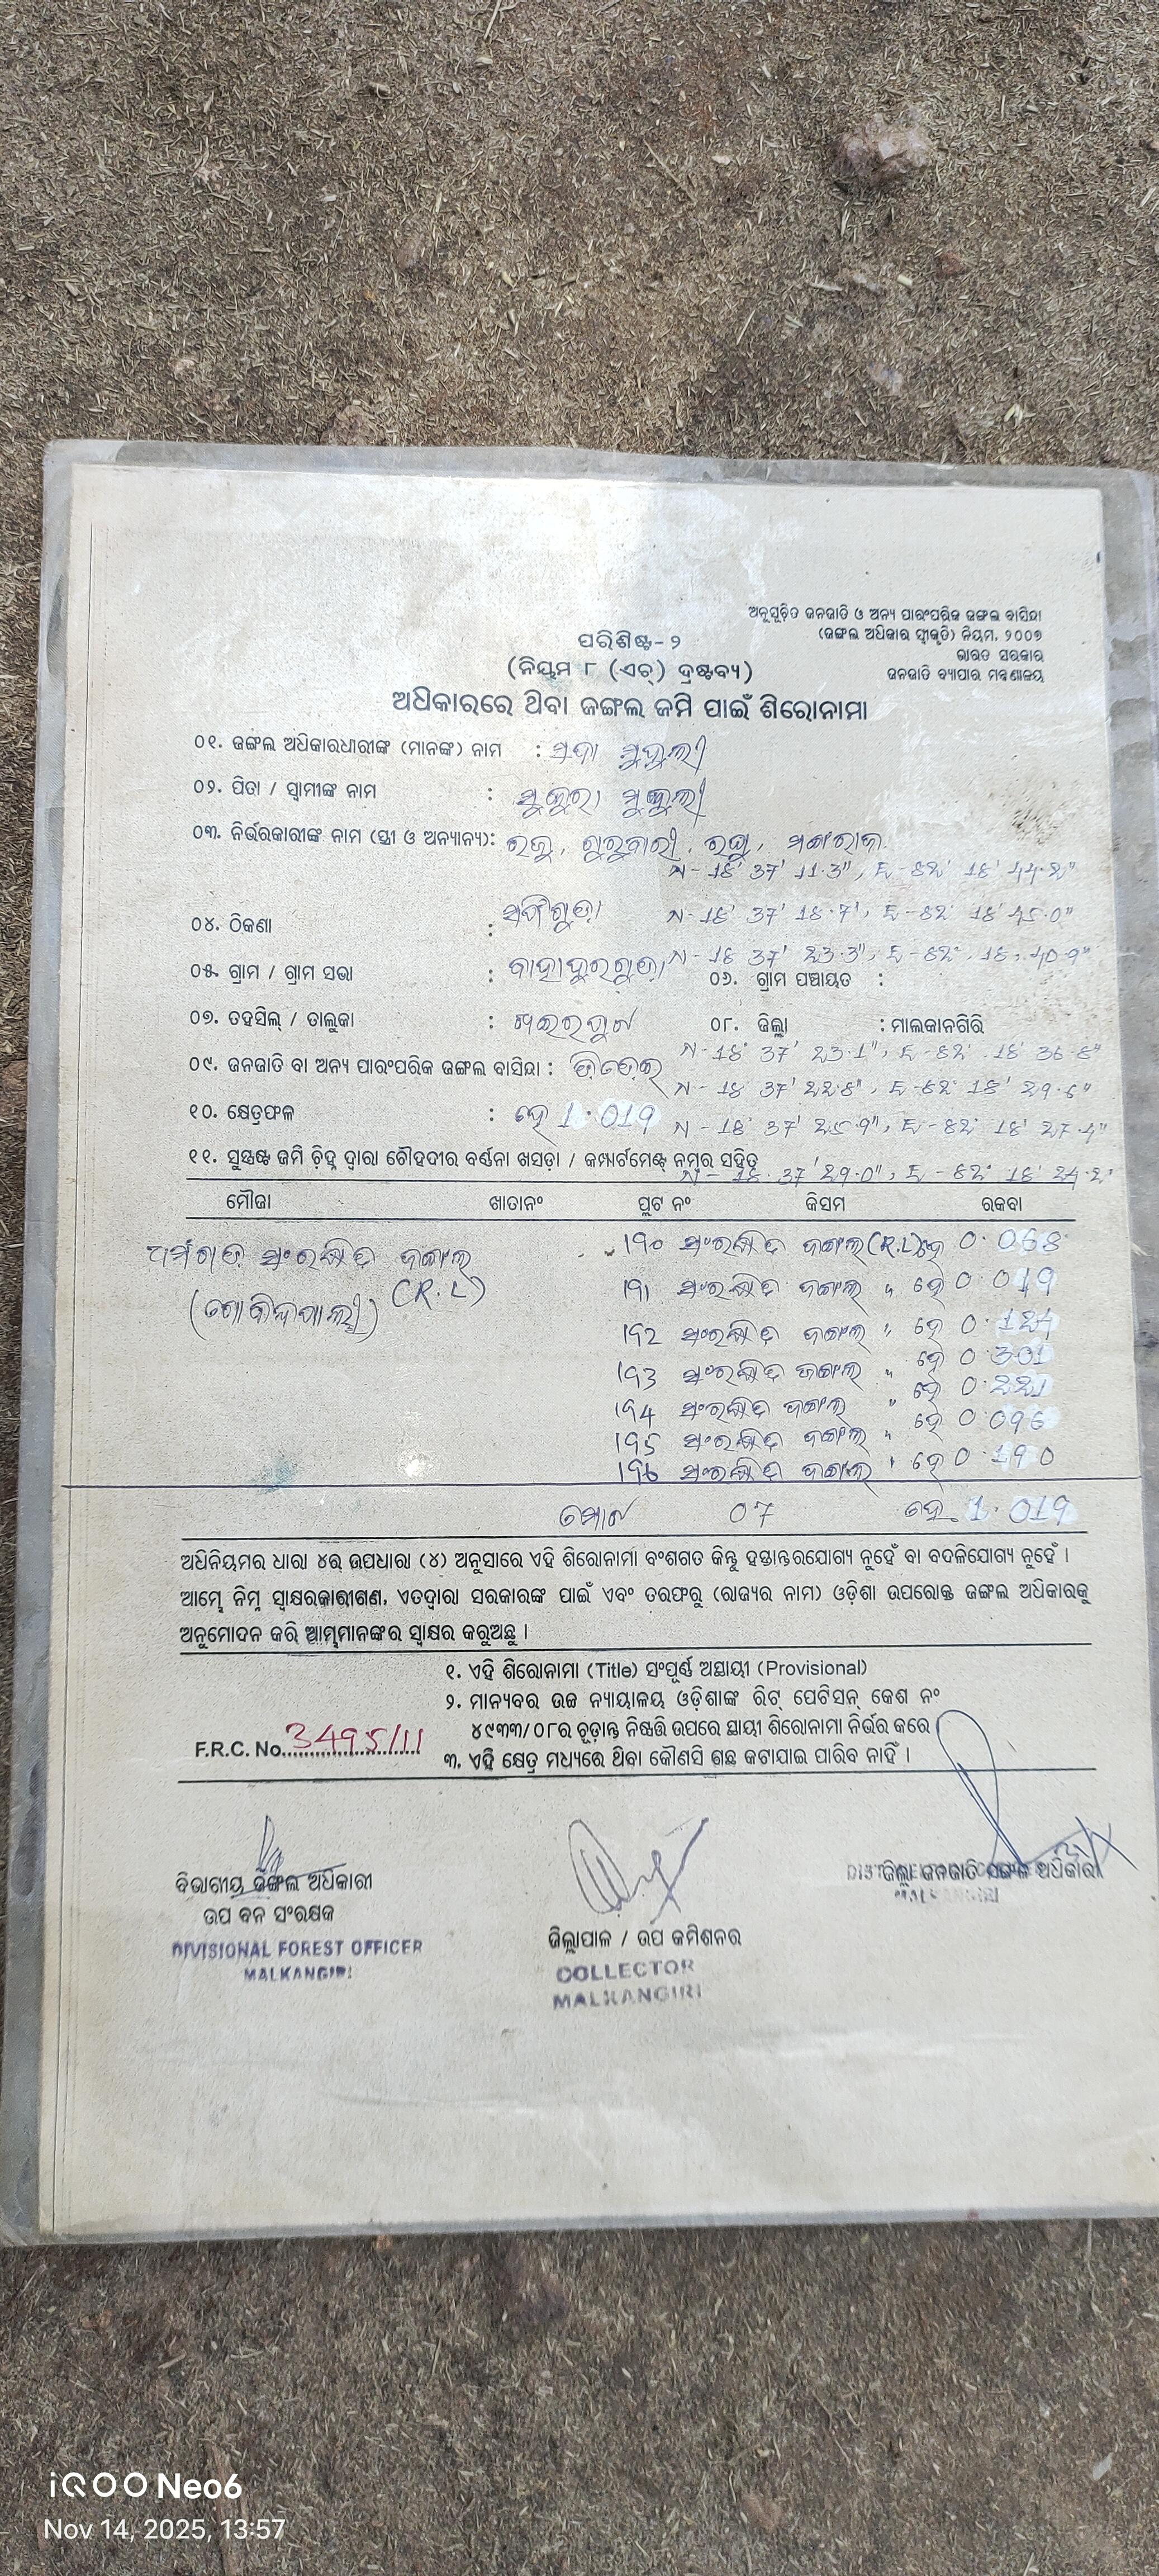 ଅନୁସୂଚିତ ଜନଜାତି ଓ ଅନ୍ୟ ପାରଂପରିକ ଜଙ୍ଗଲ ବାସିନ୍ଦା
(ଜଙ୍ଗଲ ଅଧିକାର ସ୍ୱୀକୃତି) ନିୟମ, ୨୦୦୭
ଭାରତ ସରକାର
ଜନଜାତି ବ୍ୟାପାର ମନ୍ତ୍ରଣାଳୟ
ପରିଶିଷ୍ଟ-୨
(ନିୟମ ୮ (ଏଚ୍) ଦ୍ରଷ୍ଟବ୍ୟ)
ଅଧିକାରରେ ଥିବା ଜଙ୍ଗଲ ଜମି ପାଇଁ ଶିରୋନାମା
୦୧. ଜଙ୍ଗଲ ଅଧିକାରଧାରୀଙ୍କ (ମାନଙ୍କ) ନାମ :
୦୨. ପିତା / ସ୍ୱାମୀଙ୍କ ନାମ :
୦୩. ନିର୍ଭରକାରୀଙ୍କ ନାମ (ସ୍ତ୍ରୀ ଓ ଅନ୍ୟାନ୍ୟ):
N-18° 37' 11.3", E-82° 18' 44.2"
୦୪. ଠିକଣା : N-18° 37' 18.7", E-82° 18' 45.0"
N-18° 37' 23.3", E-82° 18' 40.9"
୦୫. ଗ୍ରାମ / ଗ୍ରାମ ସଭା : ବାହାଦୁରଗୁଡା ୦୬. ଗ୍ରାମ ପଞ୍ଚାୟତ :
୦୭. ତହସିଲ୍ / ତାଲୁକା : ଖଇରପୁଟ ୦୮. ଜିଲ୍ଲା : ମାଲକାନଗିରି
N-18° 37' 23.1", E-82° 18' 36.8"
୦୯. ଜନଜାତି ବା ଅନ୍ୟ ପାରଂପରିକ ଜଙ୍ଗଲ ବାସିନ୍ଦା :
N-18° 37' 22.8", E-82° 18' 29.6"
୧୦. କ୍ଷେତ୍ରଫଳ : ହେ 1.019 N-18° 37' 25.9", E-82° 18' 27.4"
୧୧. ସୁସ୍ପଷ୍ଟ ଜମି ଚିହ୍ନ ଦ୍ୱାରା ଚୌହଦୀର ବର୍ଣ୍ଣନା ଖସଡ଼ା / କମ୍ପାର୍ଟମେଣ୍ଟ ନମ୍ବର ସହିତ
N-18° 37' 29.0", E-82° 18' 24.2"
ମୌଜା ଖାତାନଂ ପ୍ଲଟ ନଂ କିସମ ରକବା
ସଂରକ୍ଷିତ ଜଙ୍ଗଲ (R.L) 190 ସଂରକ୍ଷିତ ଜଙ୍ଗଲ (R.L) ହେ 0.068
(ଗୋବିନ୍ଦପାଲ୍ଲୀ) 191 ସଂରକ୍ଷିତ ଜଙ୍ଗଲ " ହେ 0.019
192 ସଂରକ୍ଷିତ ଜଙ୍ଗଲ " ହେ 0.124
193 ସଂରକ୍ଷିତ ଜଙ୍ଗଲ " ହେ 0.301
194 ସଂରକ୍ଷିତ ଜଙ୍ଗଲ " ହେ 0.221
195 ସଂରକ୍ଷିତ ଜଙ୍ଗଲ " ହେ 0.096
196 ସଂରକ୍ଷିତ ଜଙ୍ଗଲ " ହେ 0.190
ମୋଟ 07 ହେ 1.019
ଅଧିନିୟମର ଧାରା ୪ର ଉପଧାରା (୪) ଅନୁସାରେ ଏହି ଶିରୋନାମା ବଂଶଗତ କିନ୍ତୁ ହସ୍ତାନ୍ତରଯୋଗ୍ୟ ନୁହେଁ ବା ବଦଳିଯୋଗ୍ୟ ନୁହେଁ ।
ଆମ୍ଭେ ନିମ୍ନ ସ୍ୱାକ୍ଷରକାରୀଗଣ, ଏତଦ୍ୱାରା ସରକାରଙ୍କ ପାଇଁ ଏବଂ ତରଫରୁ (ରାଜ୍ୟର ନାମ) ଓଡ଼ିଶା ଉପରୋକ୍ତ ଜଙ୍ଗଲ ଅଧିକାରକୁ
ଅନୁମୋଦନ କରି ଆମ୍ଭମାନଙ୍କର ସ୍ୱାକ୍ଷର କରୁଅଛୁ ।
୧. ଏହି ଶିରୋନାମା (Title) ସଂପୂର୍ଣ୍ଣ ଅସ୍ଥାୟୀ (Provisional)
୨. ମାନ୍ୟବର ଉଚ୍ଚ ନ୍ୟାୟାଳୟ ଓଡ଼ିଶାଙ୍କ ରିଟ୍ ପେଟିସନ୍ କେଶ ନଂ
୪୯୩୩/୦୮ର ଚୂଡ଼ାନ୍ତ ନିଷ୍ପତ୍ତି ଉପରେ ସ୍ଥାୟୀ ଶିରୋନାମା ନିର୍ଭର କରେ
F.R.C. No. 3495/11
୩. ଏହି କ୍ଷେତ୍ର ମଧ୍ୟରେ ଥିବା କୌଣସି ଗଛ କଟାଯାଇ ପାରିବ ନାହିଁ ।
ବିଭାଗୀୟ ଜଙ୍ଗଲ ଅଧିକାରୀ
ଉପ ବନ ସଂରକ୍ଷକ
DIVISIONAL FOREST OFFICER
MALKANGIRI
ଜିଲ୍ଲାପାଳ / ଉପ କମିଶନର
COLLECTOR
MALKANGIRI
ଜିଲ୍ଲା ଜନଜାତି ମଙ୍ଗଳ ଅଧିକାରୀ
MALKANGIRI
iQOO Neo6
Nov 14, 2025, 13:57